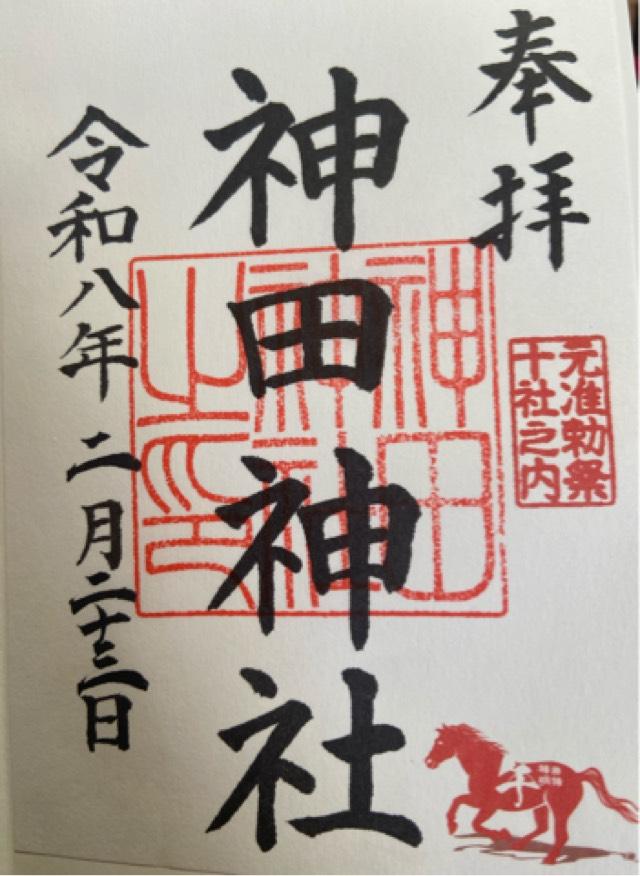 奉拝
元准勅祭
十社之内
神田神社
神田
神社
之印
令和八年 二月二十三日
午